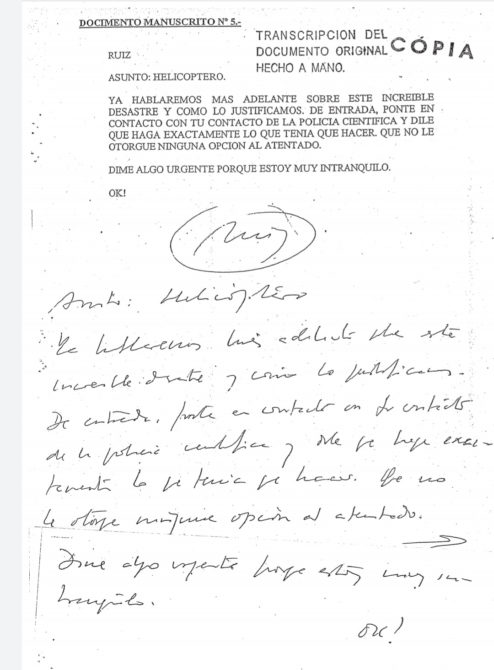 DOCIMENTO MANUSCRITO Nº 5.-
TRANSCRIPCION DEL
DOCUMENTO ORIGINAL
HECHO A MANO.
CÓPIA
RUIZ
ASUNTO: HELICOPTERO.
YA HABLAREMOS MAS ADELANTE SOBRE ESTE INCREIBLE
DESASTRE Y COMO LO JUSTIFICAMOS. DE ENTRADA, PONTE EN
CONTACTO CON TU CONTACTO DE LA POLICIA CIENTIFICA Y DILE
QUE HAGA EXACTAMENTE LO QUE TENIA QUE HACER. QUE NO LE
OTORGUE NINGUNA OPCION AL ATENTADO.
DIME ALGO URGENTE PORQUE ESTOY MUY INTRANQUILO.
OK!
Ruiz
Asunto: Helicóptero
Ya hablaremos más adelante sobre este
increible desastre y cómo lo justificamos.
De entrada, ponte en contacto con tu contácto
de la policia científica y dile que haga exac-
tamente lo que tenia que hacer. Que no
le otorgue ninguna opción al atentado.
Dime algo urgente porque estoy muy in-
tranquilo.
OK!